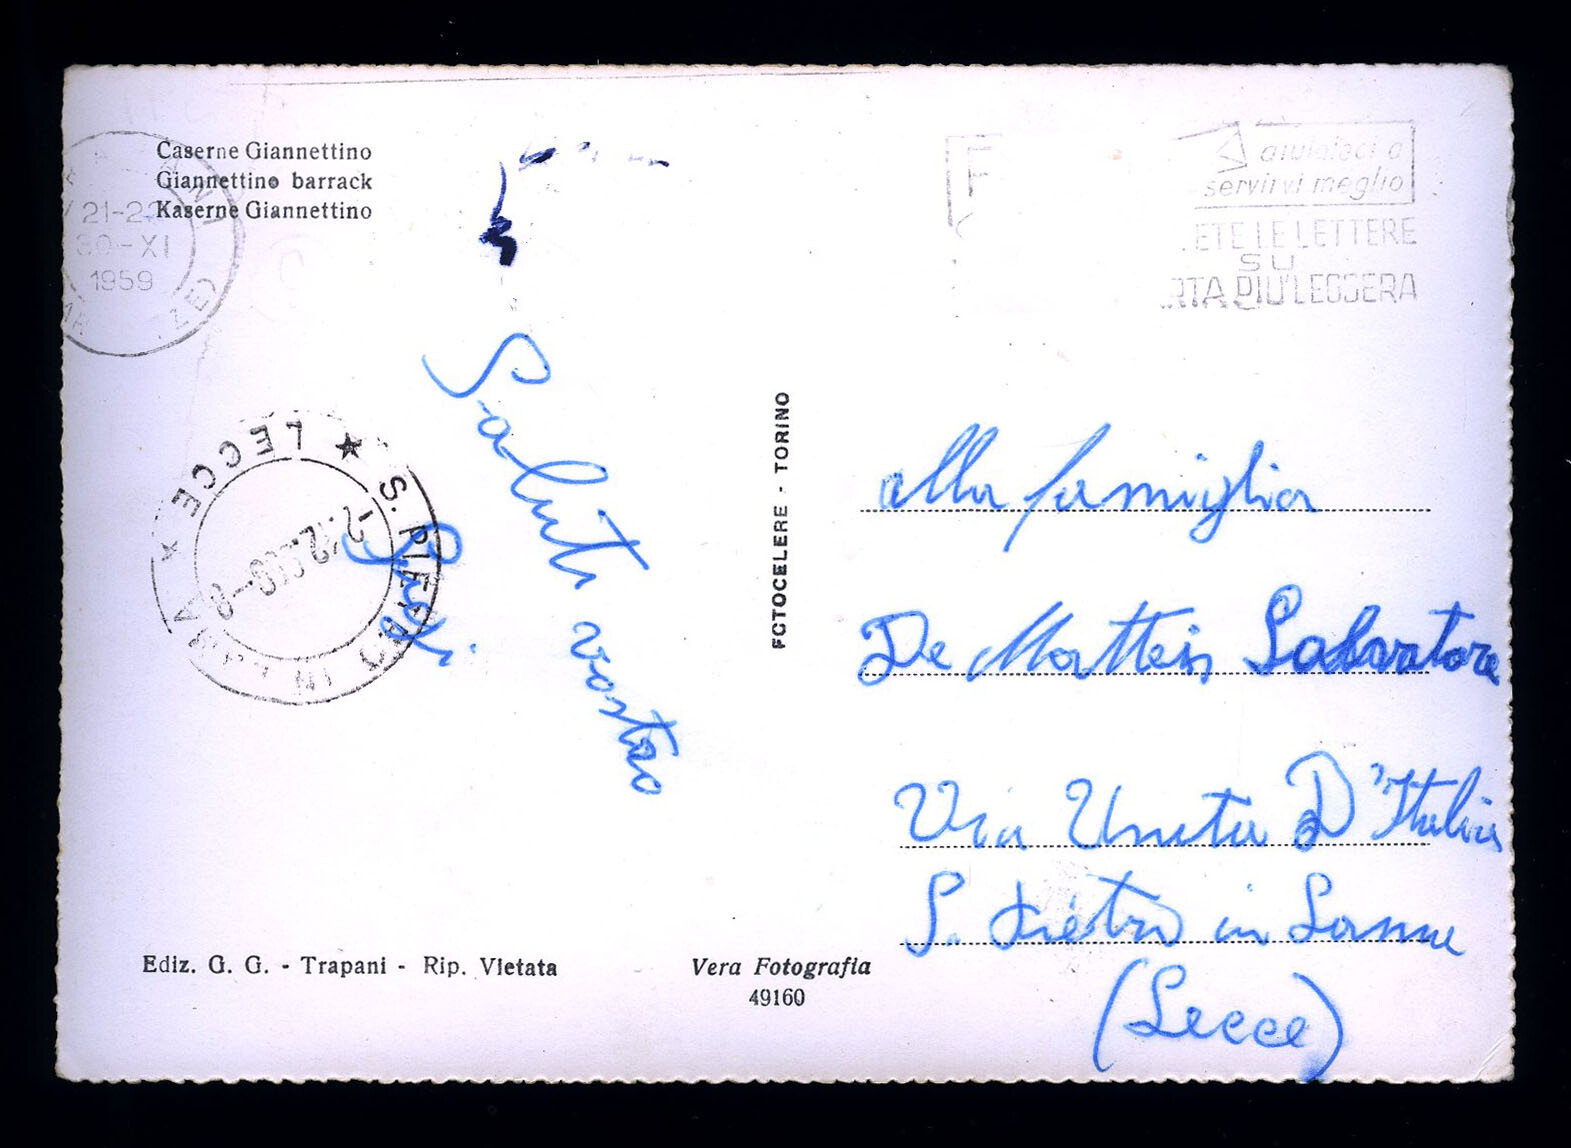 Caserne Giannettino
Giannettino barrack
Kaserne Giannettino
21-22
30-XI
1959
aiutateci a
servirvi meglio
ETE LE LETTERE
SU
RTA PIU' LEGGERA
LECCE
S. PIETRO IN LAMA
Saluti vostro
Luigi
FOTOCELERE - TORINO
alla famiglia
De Matteis Salvatore
Via Unita D'Italia
S. Pietro in Lama
(Lecce)
Ediz. G. G. - Trapani - Rip. Vietata
Vera Fotografia
49160